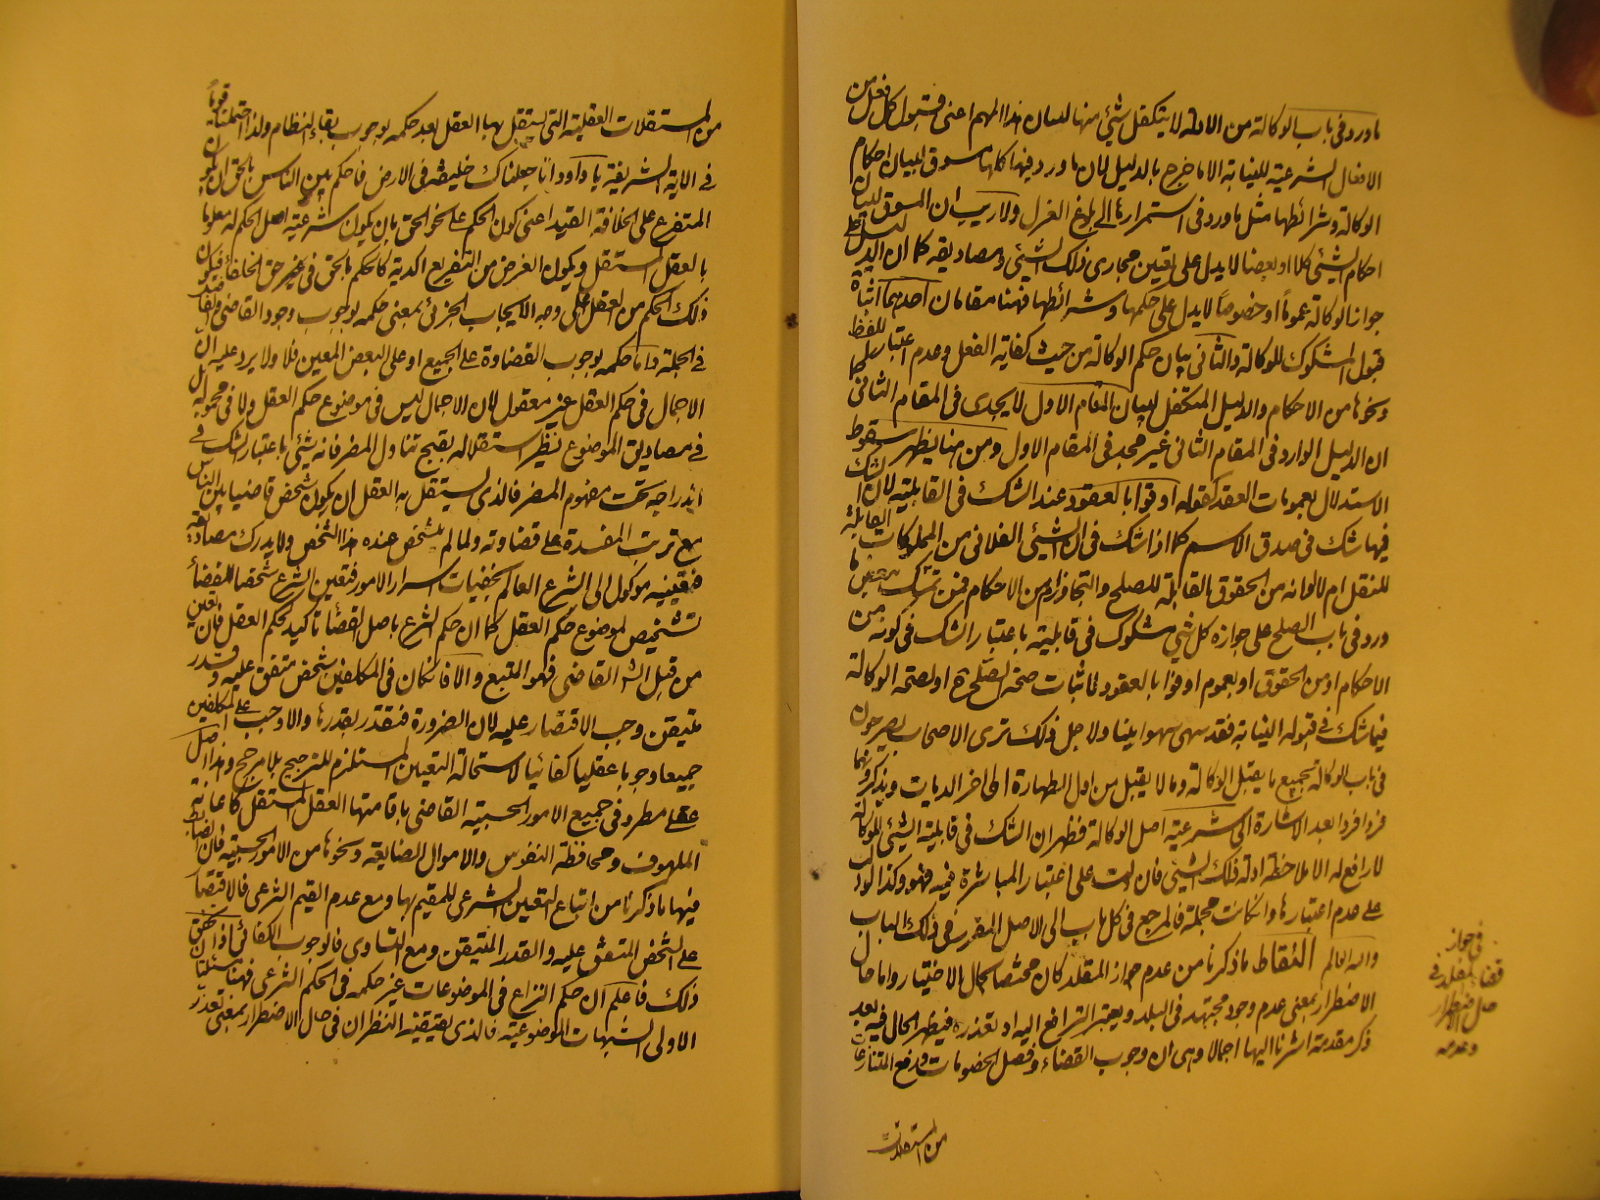 ما ورد فى باب الوكالة من الادلة لا يتكفل شئ منها لبيان هذا المهم اعنى قبول كل فعل من
الافعال الشرعية للنيابة الا ما خرج بالدليل لان ما ورد فيها كلها مسوق لبيان احكام
الوكالة وشرائطها مثل ما ورد فى استمرارها الى بلوغ العزل ولا ريب ان المسوق لبيان
احكام الشئ كلا او بعضا لا يدل على تعيين مجارى ذلك الشئ ومصاديقه كما ان الدليل على
جواز الوكالة عموماً او خصوصاً لا يدل على حكمها وشرائطها فهنا مقامان احدهما اثبات
قبول المشكوك للوكالة والثانى بيان حكم الوكالة من حيث كفاية الفعل وعدم اعتبار اللفظ
ونحوها من الاحكام والدليل المتكفل لبيان المقام الاول لا يجدى فى المقام الثانى كما
ان الدليل الوارد فى المقام الثانى غير مجد فى المقام الاول ومن هنا يظهر سقوط
الاستدلال بعمومات العقد كقوله اوفوا بالعقود عند الشك فى القابلية لان الشك
فيها شك فى صدق الاسم كما اذا شك فى ان الشئ الفلانى من المملوكات القابلة
للنقل ام لا او انه من الحقوق القابلة للصلح والتجاوز ام من الاحكام فمن تمسك بعموم ما
ورد فى باب الصلح على جوازه كل شئ مشكوك فى قابلية باعتبار الشك فى كونه من
الاحكام او من الحقوق او بعموم اوفوا بالعقود لاثبات صحة الصلح او لصحة الوكالة
فيما شك فى قبوله النيابة فقد سهى سهوا بينا ولاجل ذلك ترى الاصحاب يصرحون
فى باب الوكالة بجميع ما يقبل الوكالة وما لا يقبل من اول الطهارة الى اخر الديات ويذكرونها
فردا فردا بعد الاشارة الى شرعية اصل الوكالة فظهر ان الشك فى قابلية الشئ للوكالة
لا رافع له الا ملاحظة ادلة ذلك الشئ فان دلت على اعتبار المباشرة فيه فهو وكذا لو دلت
على عدم اعتبارها وان كانت مجملة فالمرجع فى كل باب الى الاصل المقرر فى ذلك الباب
والله العالم التقاط ما ذكرنا من عدم جواز المقلد كان مختصا بحال الاختيار واما حال
الاضطرار بمعنى عدم وجود مجتهد فى البلد ويعتبر الترافع اليه او تعذره فيظهر الحال فيه بعد
ذكر مقدمة اشرنا اليها اجمالا وهى ان وجوب القضاء وفصل الخصومات ورفع المنازعات
فى جواز
قضاء المقلد فى
حال الاضطرار
وعدمه
من المستقلات
من المستقلات العقلية التى يستقل بها العقل بعد حكمه بوجوب بقاء النظام ولذا احتملنا قويا
فى الاية الشريفة يا داوود انا جعلناك خليفة فى الارض فاحكم بين الناس بالحق ان يكون
المتفرع على الخلافة القيد اعنى كون الحكم على نحو الحق بان يكون شرعية اصل الحكم له معلوما
بالعقل المستقل ويكون الغرض من التفريع اكدية كالحكم بالحق فى غير حق الخلفاء فيكون
ذلك الحكم من العقل على وجه الايجاب الجزئى بمعنى حكمه بوجوب وجود القاضى
فى الجملة واما حكمه بوجوب القضاوة على الجميع او على البعض المعين فلا ولا يرد عليه ان
الاجمال فى حكم العقل غير معقول لان الاجمال ليس فى موضوع حكم العقل ولا فى محموله بل
فى مصاديق الموضوع نظير استقلاله بقبح تناول المضر فانه شئ باعتبار الشك فى
اندراجه تحت مفهوم المضر فالذى يستقل به العقل ان يكون شخص قاضيا بين الناس
مع ترتب المفسدة على قضاوته ولما لم يتشخص عنده هذا الشخص ولا يدرك مصاديقه
فتعيينه موكول الى الشرع العالم بخفيات اسرار الامور فتعيين الشرع شخصا للقضاء
تشخيص لموضوع حكم العقل كما ان حكم الشرع باصل القضاء تاكيد لحكم العقل فان تعين
من قبل الشارع القاضى فهو المتبع والا فان كان فى المكلفين شخص متفق عليه وقدر
متيقن وجب الاقتصار عليه لان الضرورة فتقدر بقدرها والا وجب على المكلفين
جميعا وجوبا عقليا كفائيا لاستحالة التعيين المستلزم للترجيح بلا مرجح وهذا اصل
عقلى مطرد فى جميع الامور الحسبية القاضى باقامتها العقل المستقل كاعانة
الملهوف ومحافظة النفوس والاموال الضايعة ونحوها من الامور الحسبية فان الضابط
فيها ما ذكرنا من اتباع التعيين الشرعى للمقيم بها ومع عدم القيم الشرعى فالاقتصار
على الشخص المتفق عليه والقدر المتيقن ومع التساوى فالوجوب الكفائى اذا تحقق
ذلك فاعلم ان حكم النزاع فى الموضوعات غير حكمه فى الحكم الشرعى فهنا مسئلتان
الاولى الشبهات الموضوعية فالذى يقتضيه النظر ان فى حال الاضطرار بمعنى تعذر